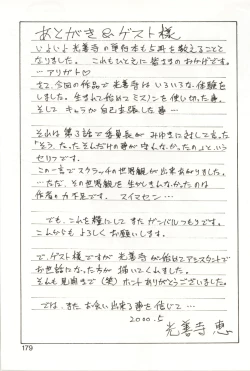 あとがき&ゲスト様
いよいよ光善寺の単行本も5冊を数えることと
なりました。これもひとえに皆さまのおかげです。
…アリガト♡
さて、今回の作品で光善寺はいろいろな体験を
しました。生まれて始めてミスノンを使い切った事、
そしてキャラが自己主張した事…
それは第3話で委員長がみゆまに対して言った
「そう、たったそんだけの事が守んなかったのよ」という
セリフです。
この一言でスクラッチの世界観が出来あがりました。
…ただ、その世界観を生かしきれなかったのは
作者の力不足です。スイマセン…
でも、これを糧にしてまたガンバルつもりです。
これからもよろしくお願いします。
で、ゲスト様ですが光善寺が始めてアシスタントで
お世話になった方が描いてくれました。
そんも見開きで(笑)ホントありがとうございました。
では、またお会い出来る事を信じて…
2000.5
光善寺 恵
179